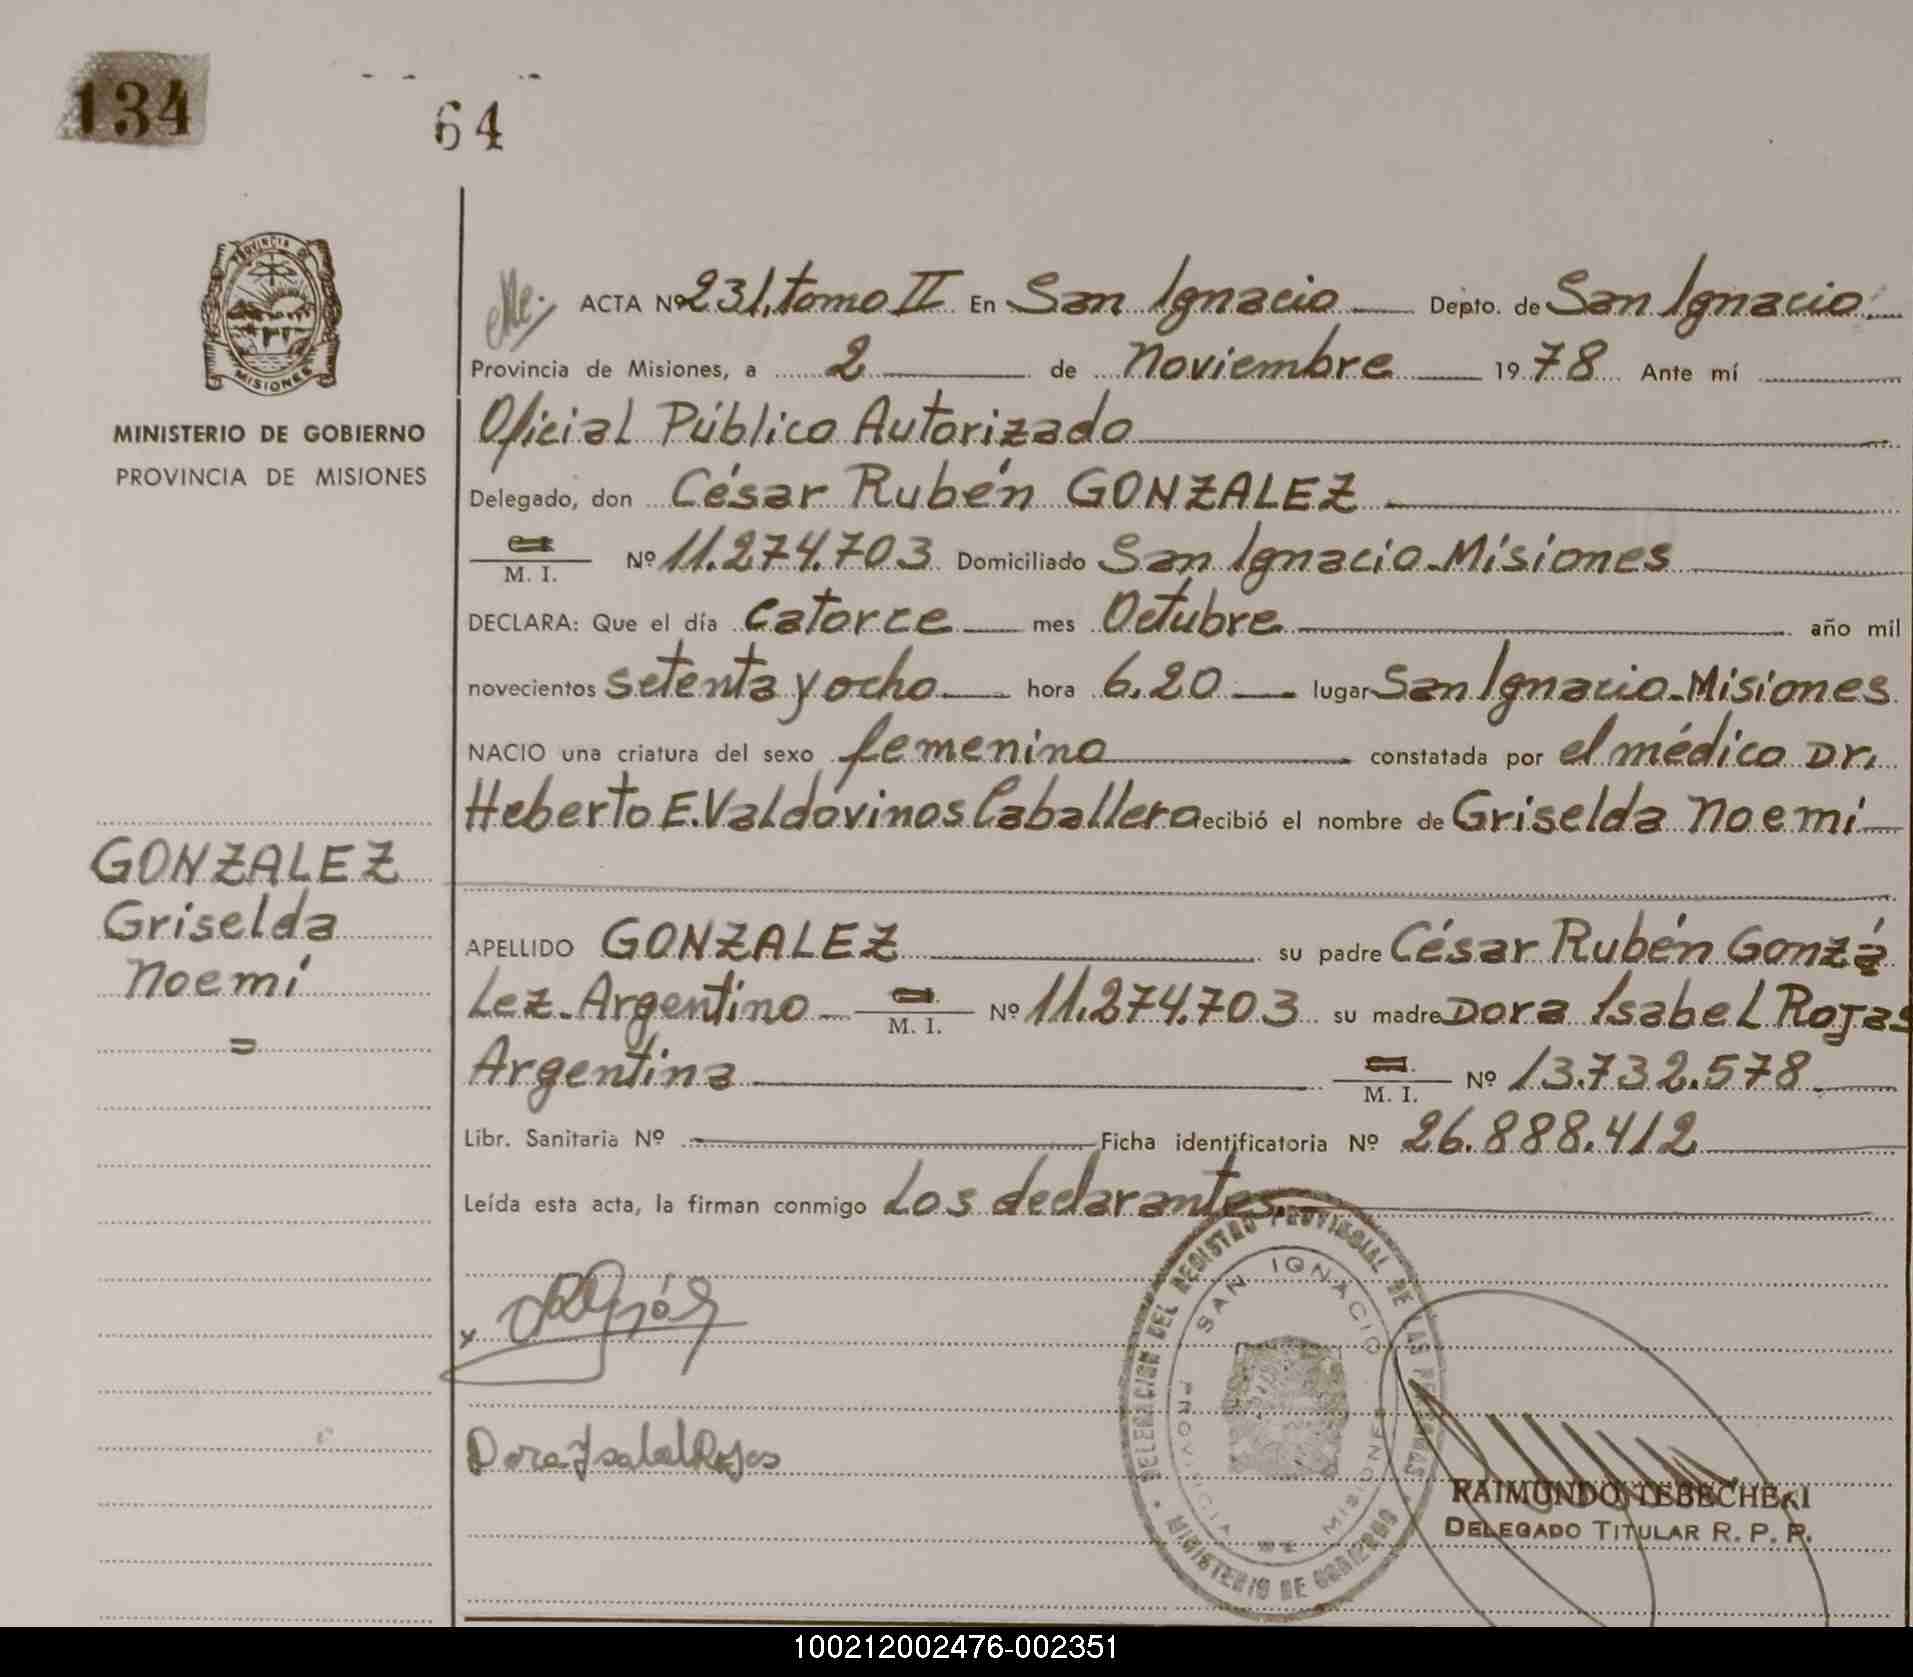 134
64
PROVINCIA DE
MISIONES
MINISTERIO DE GOBIERNO
PROVINCIA DE MISIONES
GONZALEZ
Griselda
Noemí
=
ACTA Nº 231, tomo II En San Ignacio Depto. de San Ignacio
Provincia de Misiones, a 2 de Noviembre 1978 Ante mí
Oficial Público Autorizado
Delegado, don César Rubén GONZALEZ
M. I. Nº 11.274.703 Domiciliado San Ignacio-Misiones
DECLARA: Que el día catorce mes Octubre año mil
novecientos setenta y ocho hora 6,20 lugar San Ignacio-Misiones
NACIO una criatura del sexo femenino constatada por el médico Dr.
Heberto E. Valdovinos Caballero recibió el nombre de Griselda Noemí
APELLIDO GONZALEZ su padre César Rubén Gonzá
lez-Argentino M. I. Nº 11.274.703 su madre Dora Isabel Rojas
Argentina M. I. Nº 13.732.578
Libr. Sanitaria Nº Ficha identificatoria Nº 26.888.412
Leída esta acta, la firman conmigo los declarantes.
x
Dora Isabel Rojas
DELEGACION DEL REGISTRO PROVINCIAL DE LAS PERSONAS
SAN IGNACIO
PROVINCIA DE MISIONES
MINISTERIO DE GOBIERNO
RAIMUNDO TEBECHEKI
DELEGADO TITULAR R. P. P.
100212002476-002351